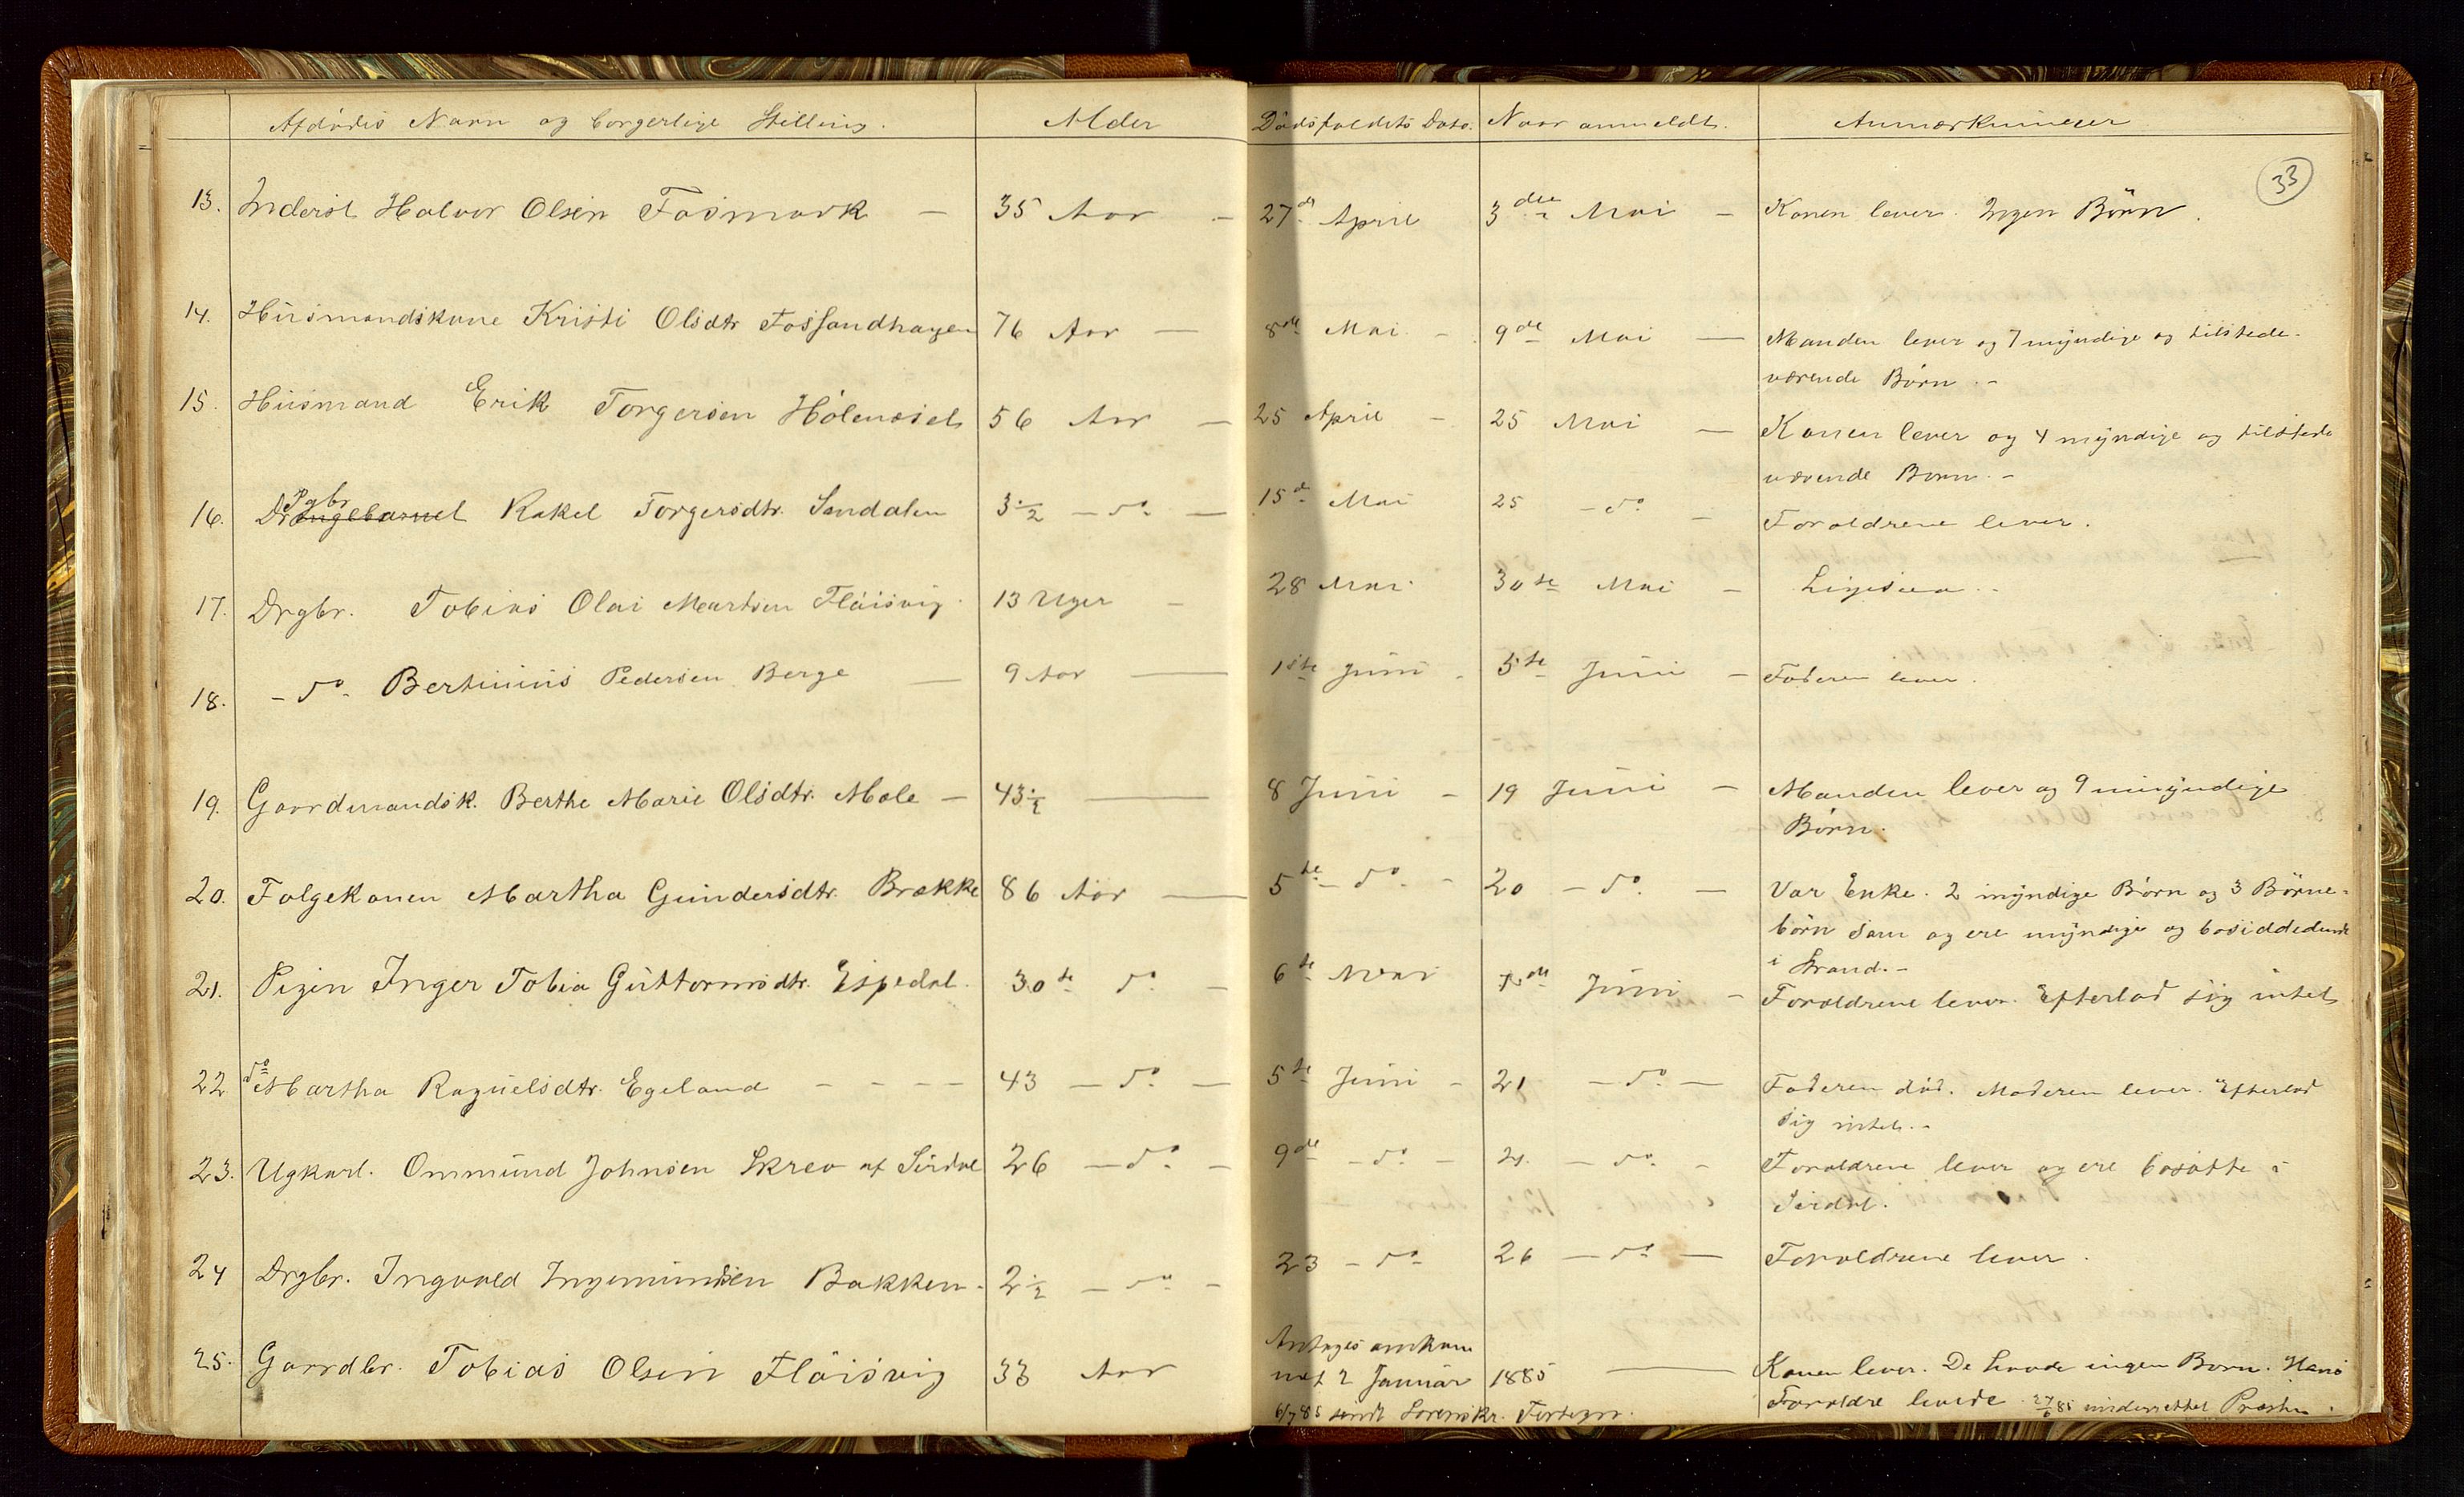 Afdødes Navn og borgerlige Stilling. Alder Dødsfaldets Dato. Naar anmeldt. Anmærkninger
33
13. Inderst Halvor Olsen Fosmark – 35 Aar – 27de April 3die Mai – Konen lever. Ingen Börn.
14. Husmandskone Kristi Olsdtr Fossandhagen 76 Aar – 8de Mai – 9de Mai – Manden lever og 7 myndige og tilstede-
værende Börn. –
15. Husmand Erik Torgersen Hölenæset 56 Aar – 25 April – 25 Mai – Konen lever og 4 myndige og tilstede
værende Born. –
Pgbr
16. Drengebarnet Rakel Torgersdtr. Sendalen 3 1/2 – do – 15de Mai 25 – do – Forældrene lever.
17. Drgbr. Tobias Olai Martsen Flöisvig. 13 Uger – 28 Mai 30te Mai – Ligesaa. –
18. – do – Bertinius Pedersen Berge – 9 Aar – 1ste Juni – 5te Juni – Faderen lever.
19. Gaardmandsk. Berthe Marie Olsdtr. Mæle – 43 1/2 – 8 Juni – 19 Juni – Manden lever og 9 umyndige
Börn.
20. Folgekonen Martha Gundersdtr. Brække 86 Aar – 5te – do – 20 – do – Var Enke. 2 myndige Börn og 3 Börne-
börn som og ere myndige og bosiddedende
i Strand. –
21. Pigen Inger Tobia Guttormsdtr. Espedal. 30te do – 6te Mai 7de Juni – Forældrene lever. Efterlod sig intet
22 do Martha Raguelsdtr. Egeland – – – – 43 – do – 5te Juni – 21 – do – Faderen död. Moderen lever. Efterlod
sig intet. –
23. Ugkarl. Ommund Johnsen Skrev af Sirdal 26 – do – 9de – do – 21. – do – Forældrene lever og ere bosatte i
Sirdal.
24 Drgbr. Ingvald Ingemundsen Bakken. 2 1/2 – do – 23 – do – 26 – do – Forældrene lever.
25. Gaardbr. Tobias Olsen Flöisvig 33 Aar Antages omkom
met 2 Januar 1885 – Konen lever. De havde ingen Born. Hans
Forældre levede. 27/6 85 underrettet Præsten.
6/7 85 sendt Sorenskr. Fortegn.